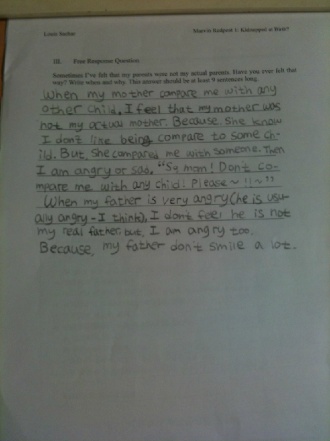 Louis Sachar Marvin Redpost 1: Kidnapped at Birth?
III. Free Response Question:
Sometimes I've felt that my parents were not my actual parents. Have you ever felt that
way? Write when and why. This answer should be at least 9 sentences long.
When my mother compare me with any
other child, I feel that my mother was
not my actual mother. Because she know
I don't like being compare to some ch-
ild. But she compared me with someone. Then
I am angry or sad. mom! Don't co-
mpare me with any child! Please~!!~"
When my father is very angry(he is usu-
ally angry-I think), I don't feel he is not
my real father but, I am angry too.
Because, my father don't smile a lot.